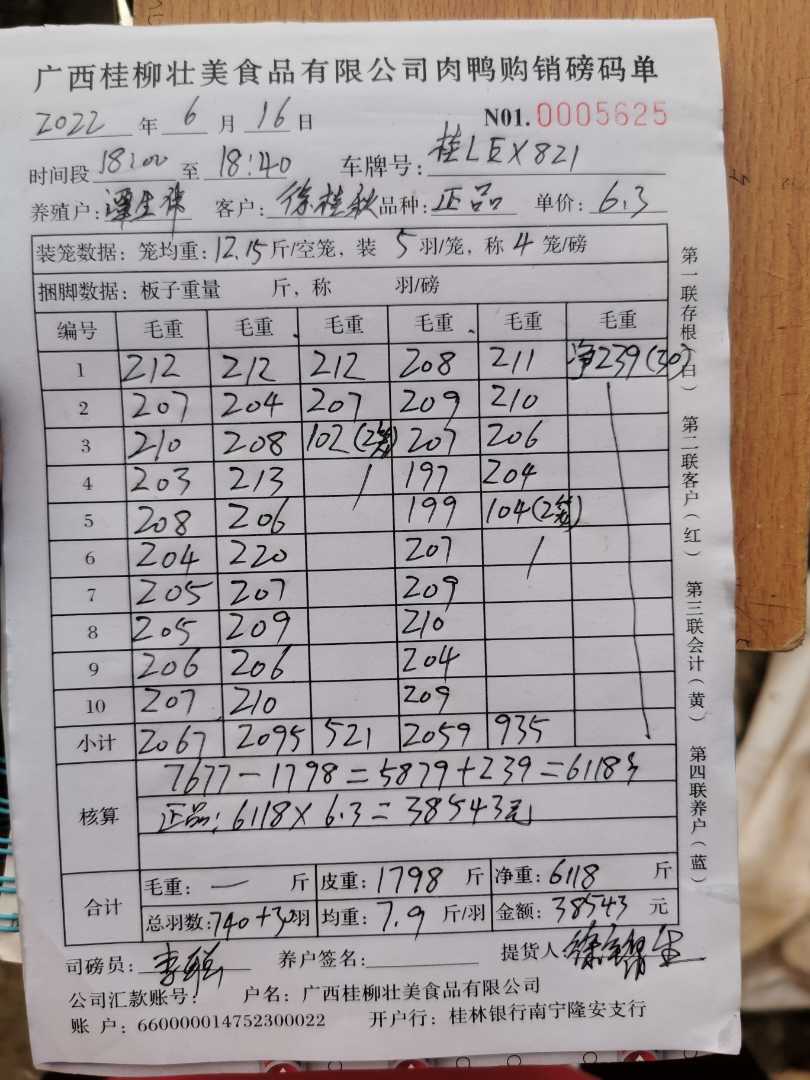 广西桂柳壮美食品有限公司肉鸭购销磅码单
2022 年 6 月 16 日 N01. 0005625
时间段 18:00 至 18:40 车牌号: 桂LEX821
养殖户: 客户: 徐桂秋 品种: 正品 单价: 6.3
装笼数据: 笼均重: 12.15 斤/空笼, 装 5 羽/笼, 称 4 笼/磅
捆脚数据: 板子重量 斤, 称 羽/磅
编号 毛重 毛重 毛重 毛重 毛重 毛重
1 212 212 212 208 211 净239(30)
2 207 204 207 209 210
3 210 208 102(2笼) 207 206
4 203 213 / 197 204
5 208 206 199 104(2笼)
6 204 220 207 /
7 205 207 209
8 205 209 210
9 206 206 204
10 207 210 209
小计 2067 2095 521 2059 935
核算
7677-1798=5879+239=6118斤
正品: 6118×6.3=38543元
合计
毛重: — 斤 皮重: 1798 斤 净重: 6118 斤
总羽数: 740+30羽 均重: 7.9 斤/羽 金额: 38543 元
司磅员: 养户签名: 提货人:
公司汇款账号: 户名: 广西桂柳壮美食品有限公司
账 户: 660000014752300022 开户行: 桂林银行南宁隆安支行
第一联存根(白) 第二联客户(红) 第三联会计(黄) 第四联养户(蓝)